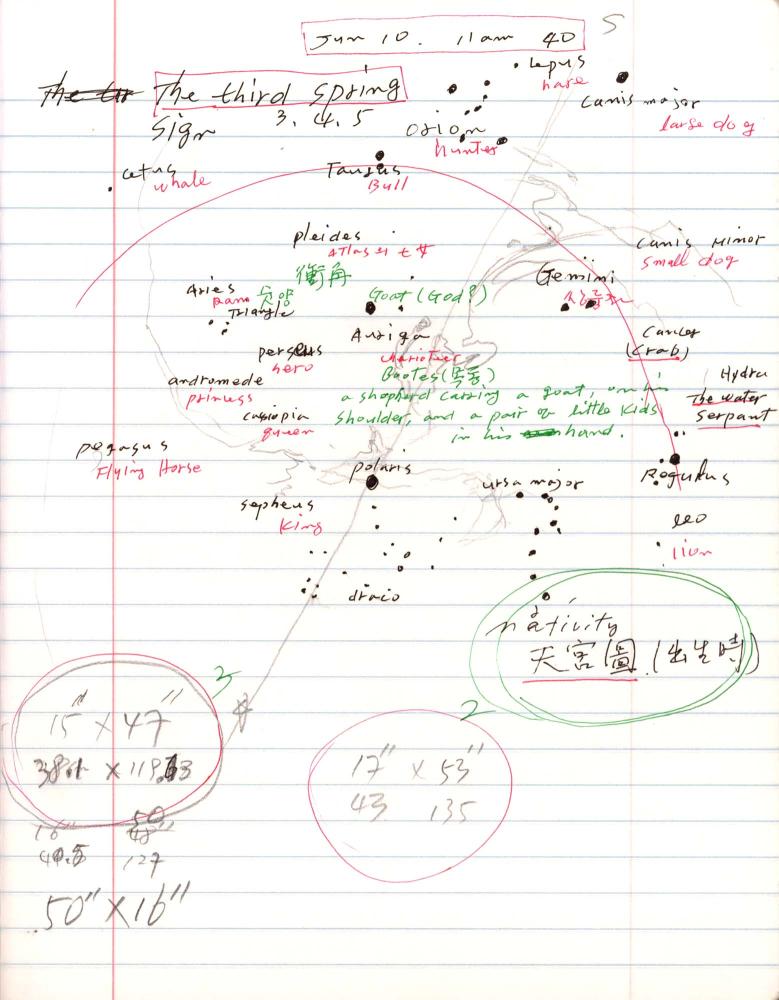 S
Jun 10. 11am 40
The third spring
sign 3. 4. 5
Lepus
hare
Canis major
large dog
Orion
hunter
cetus
whale
Taurus
Bull
pleides
Atlas의 七女
衝角
Canis Minor
small dog
Gemini
Aries
Ram 숫양
Triangle
Goat (God?)
Auriga
charioteer
Cancer
(crab)
perseus
hero
Bootes (목동)
andromede
princess
a shepherd carring a goat, on his
shoulder, and a pair of little kids
in his hand.
Hydra
The water
serpant
cassiopia
queen
pegasus
Flying Horse
polaris
ursa major
Regulus
sepheus
King
leo
lion
draco
nativity
天宮圖 (出生時)
3
15" x 47"
38.1 x 119.13
2
17" x 53"
43 135
16"
50
127
50" x 16"